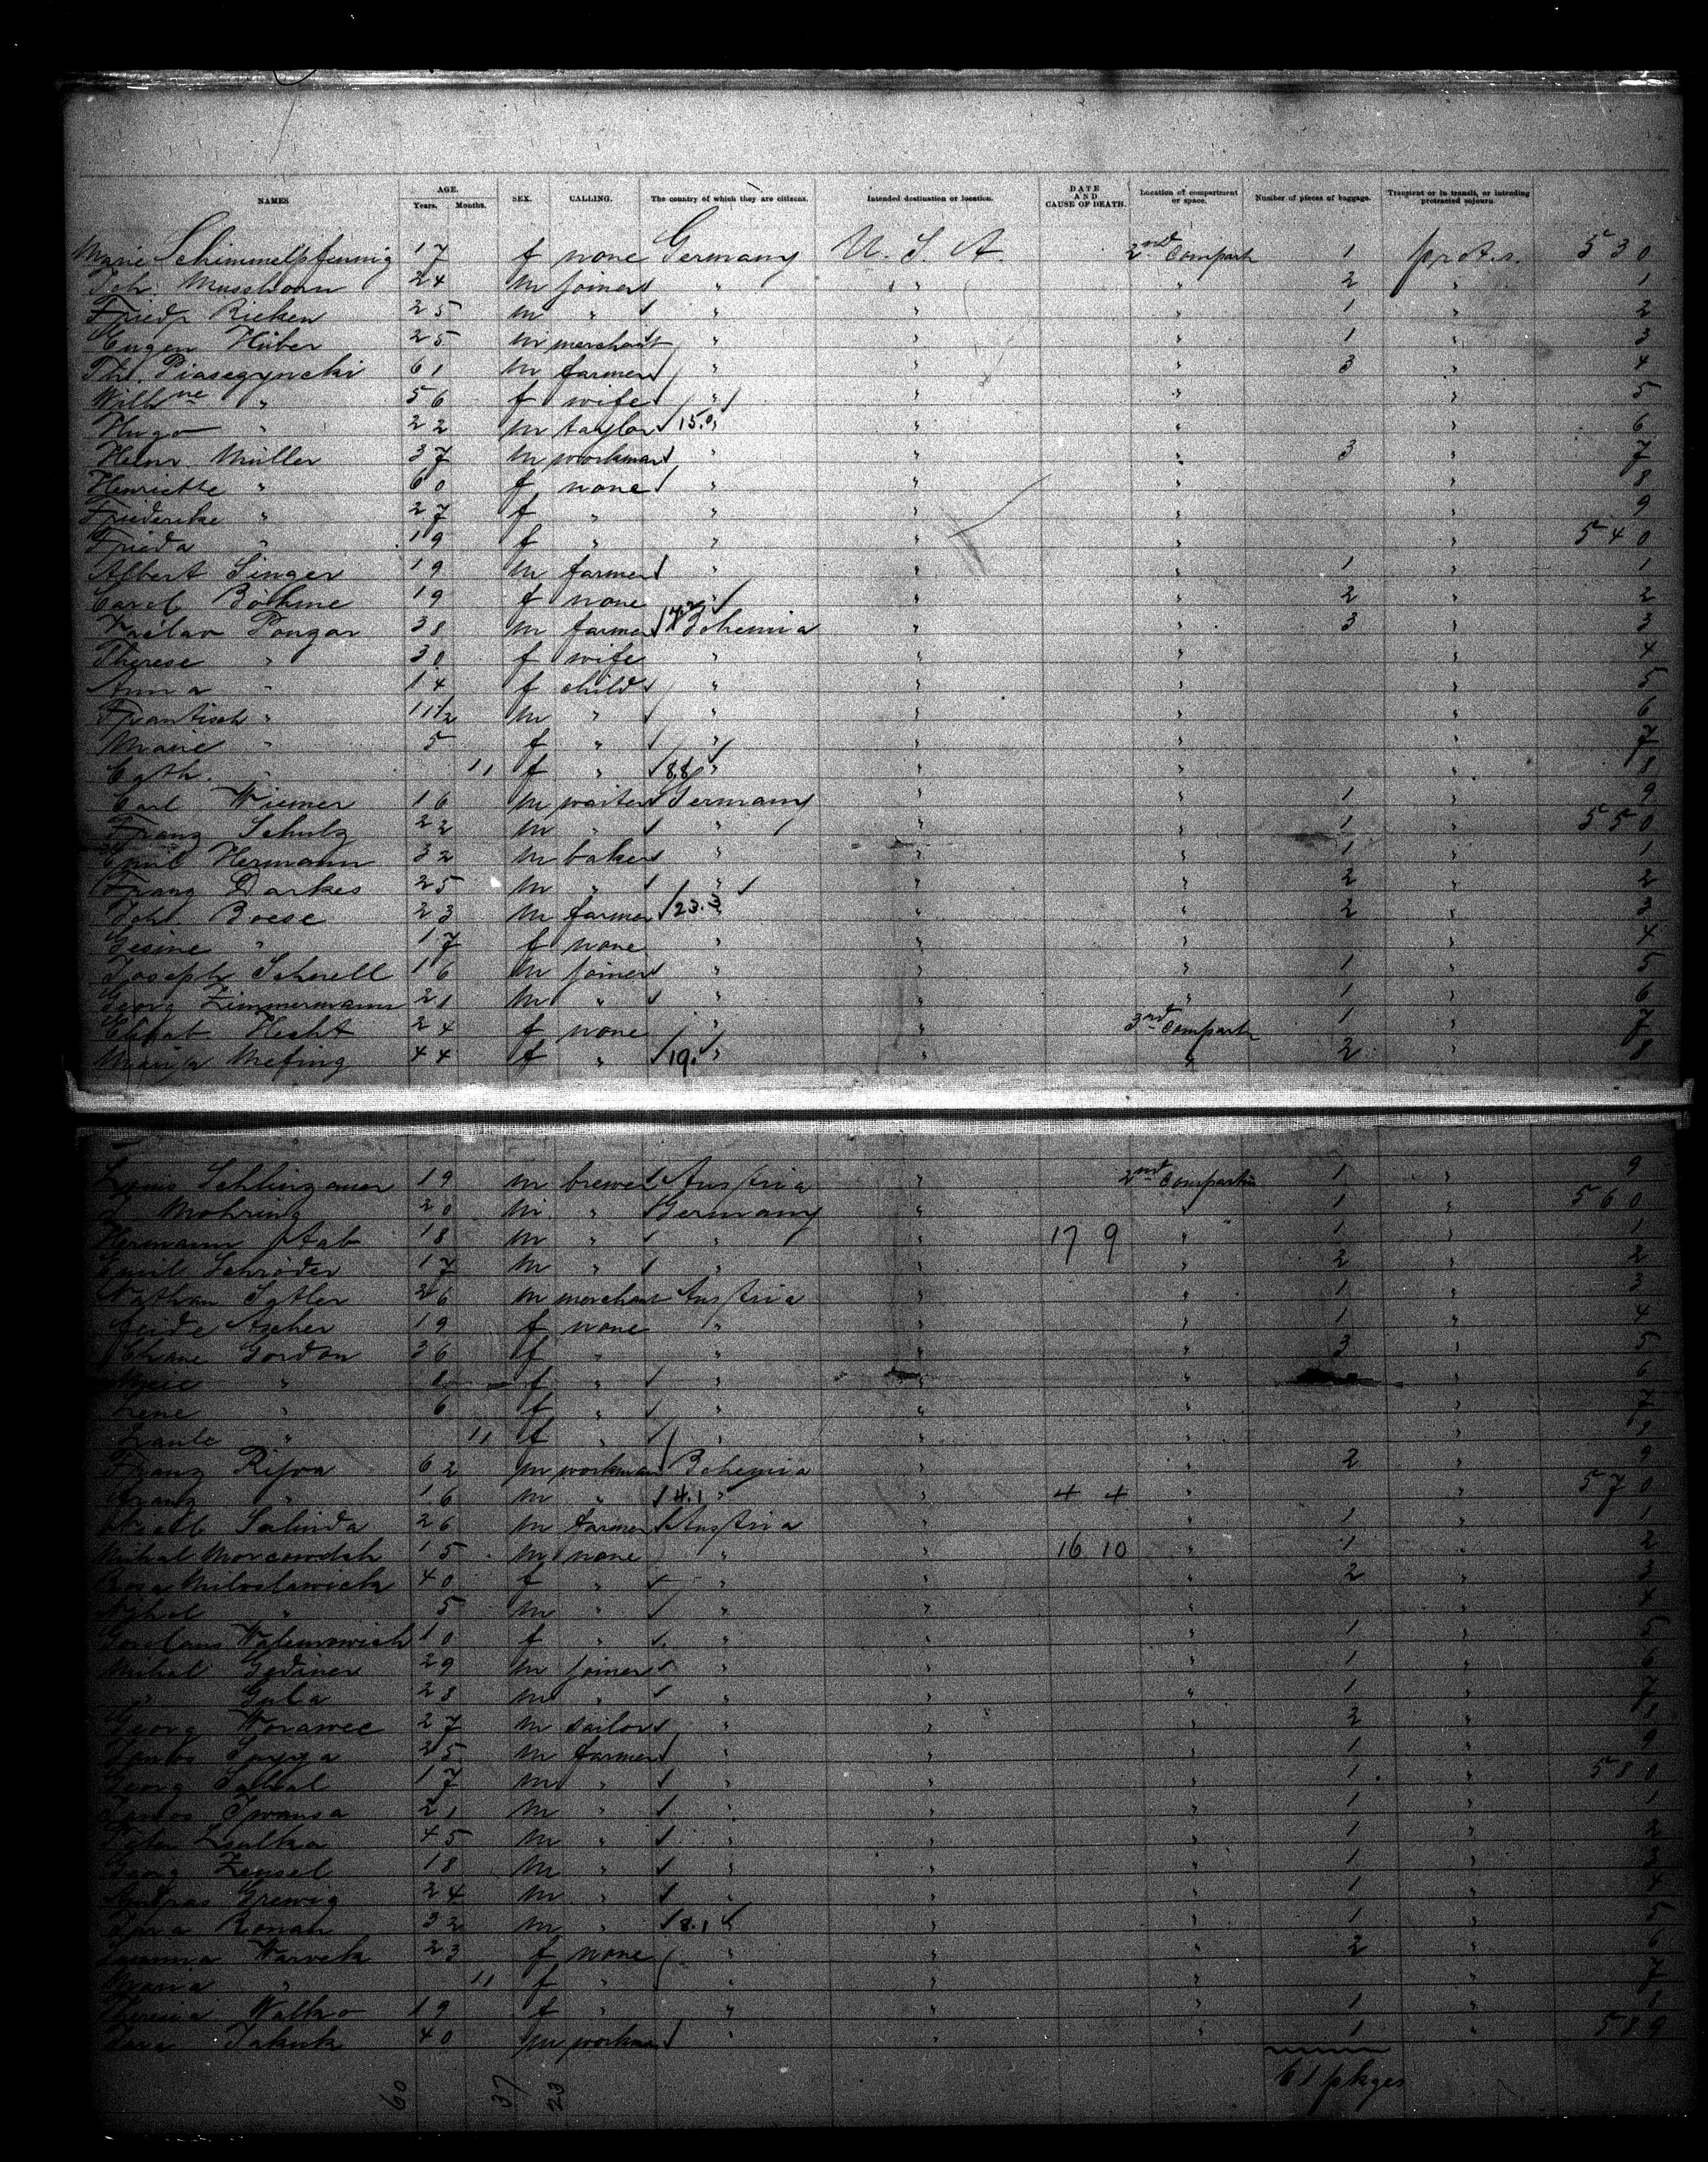 NAMES AGE. Years. Months. SEX. CALLING. The country of which they are citizens. Intended destination or location. DATE AND CAUSE OF DEATH. Location of compartment or space. Number of pieces of baggage. Transient or in transit, or intending protracted sojourn
Marie Schimmelpfennig 17 f none Germany U. S. A. 2nd Compart 1 530
Joh. Musshorn 24 m joiner " " " 2 " 1
Friedr Ricken 25 m " " " " 1 " 2
Eugen Huber 25 m merchant " " " 1 " 3
Th. Piasezyncki 61 m farmer " " " 3 " 4
Wilhne " 56 f wife " " " " 5
Hugo " 22 m taylor 15.0 " " " " 6
Heinr. Müller 37 m workman " " " 3 " 7
Henriette " 60 f none " " " " 8
Friederike " 27 f " " " " " 9
Frieda " 19 f " " " " " 540
Albert Singer 19 m farmer " " " 1 " 1
Carol. Böhme 19 f none " " " 2 " 2
Vaclav Pongar 38 m farmer Bohemia " " 3 " 3
Therese " 30 f wife " " " " 4
Anna " 14 f child " " " " 5
Frantisch " 11½ m " " " " " 6
Marie " 5 f " " " " " 7
Cath. " 11 f " 8.8 " " " " 8
Carl Wiemer 16 m waiter Germany " " 1 " 9
Franz Schulz 22 m " " " " 1 " 550
Emil Hermann 32 m baker " " " 1 " 1
Franz Darkes 25 m " " " " 2 " 2
Joh. Roese 23 m farmer 23.3 " " " 2 " 3
Gesine " 17 f none " " " " 4
Joseph Schnell 16 m joiner " " " 1 " 5
Georg Zimmermann 21 m " " " " 1 " 6
Elisab. Hecht 24 f none " " 3rd Compart 1 " 7
Marija Mefing 44 f " 19. " " " 2 " 8
19 m brewer Austria " 2nd Compartm 1 " 9
J. Mohring 20 m " Germany " " 1 " 560
Hermann Aab 18 m " " " 17 9 " 1 " 1
Emil Schröder 17 m " " " " 2 " 2
Nathan Satler 26 m merchant Austria " " 1 " 3
Ascher 19 f none " " " 1 " 4
Gordon 36 f " " " " 3 " 5
" f " " " " " 6
Lene " 6 f " " " " " 7
" 11 f " " " " " 8
Franz Rijva 62 m workman Bohemia " " 2 " 9
Franz " 16 m " 4.1 " " 4 4 " " 570
Salinda 26 m farmer Austria " " 1 " 1
Mihal Morcowdch 15 m none " " 16 10 " 1 " 2
Rosa Miloslawich 40 f " " " " 2 " 3
Mihal " 5 m " " " " " 4
Walemowich 10 f " " " " 1 " 5
Mihal Gediner 29 m joiner " " " 1 " 6
" Gula 28 m " " " " 1 " 7
Georg Worawec 27 m sailor " " " 2 " 8
25 m farmer " " " 1 " 9
Georg 17 m " " " " 1 " 580
Janos Iwansa 21 m " " " " 1 " 1
Peter Zsulka 45 m " " " " 1 " 2
Georg Zeysel 18 m " " " " 1 " 3
Andras Grewig 24 m " " " " 1 " 4
Ronan 32 m " 8.1 " " " 1 " 5
Warvek 23 f none " " " 2 " 6
Maria " 11 f " " " " " 7
Theresia Walko 19 f " " " " 1 " 8
Jakuk 40 m workman " " 1 " 589
60 37 23 61 pkges